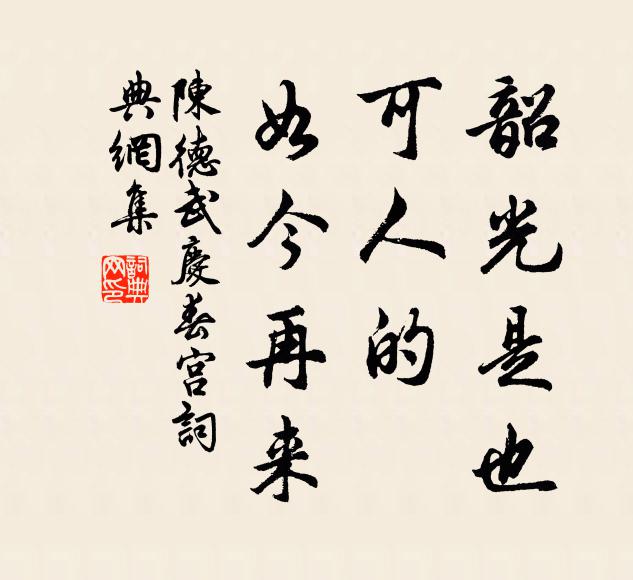 韶光是也
可人的
如今再来
陳德武慶春宫詞
典網集
詞典網印